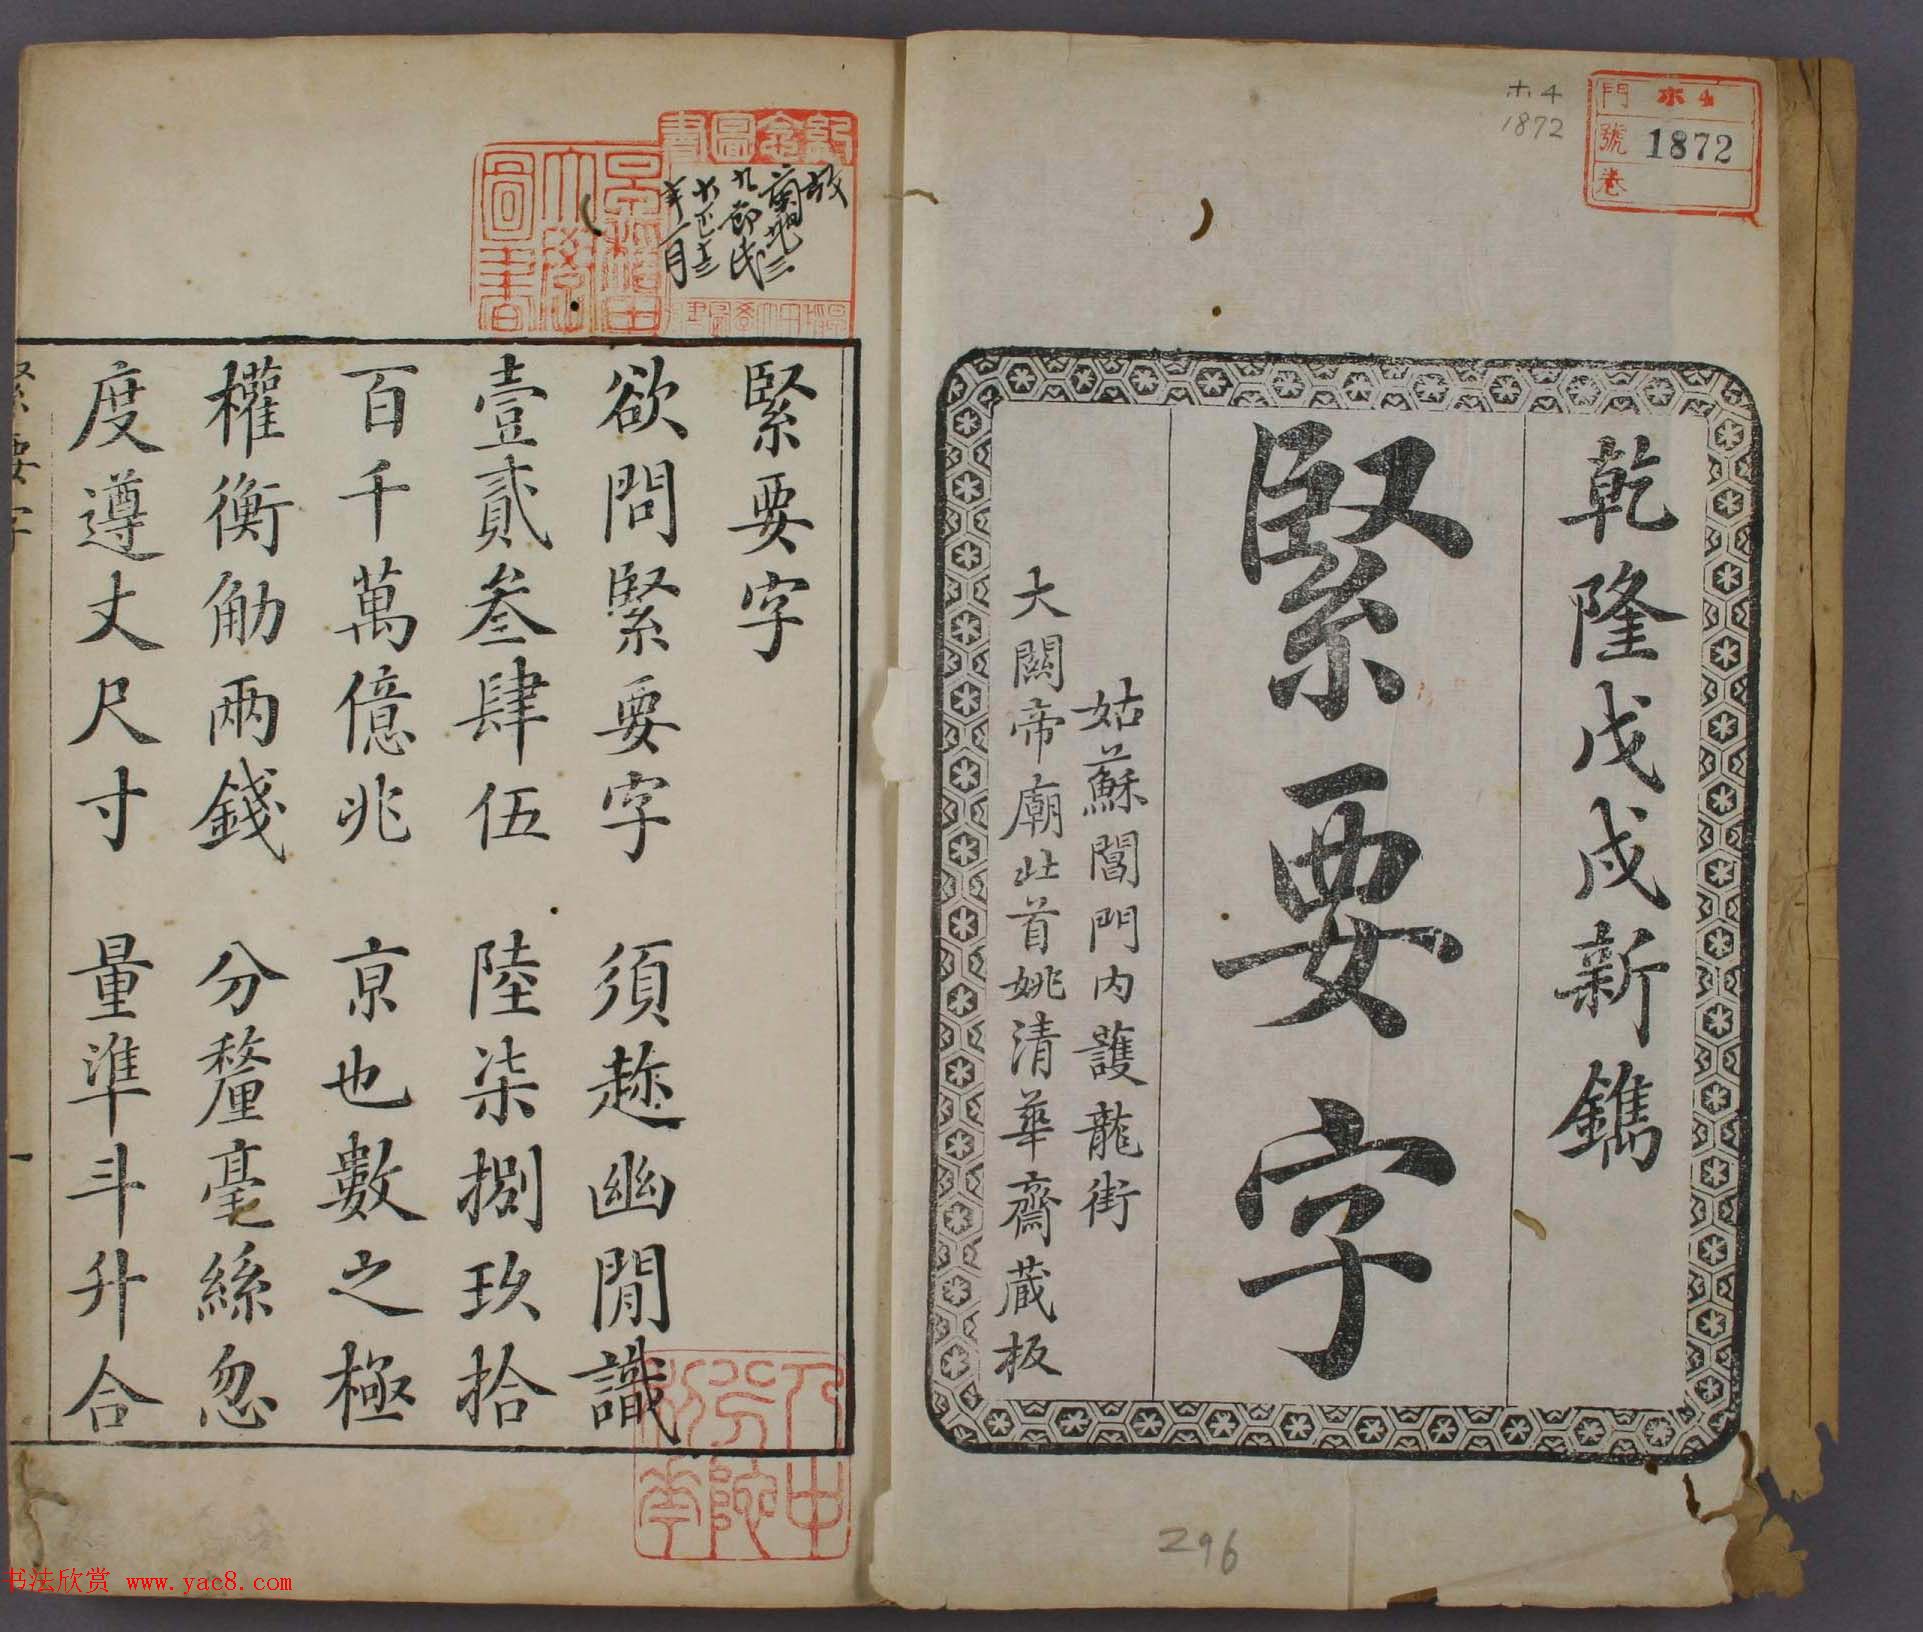 ホ4
1872
門 ホ4
號 1872
卷
乾隆戊戌新鐫
緊要字
姑蘇閶門內護龍街
大關帝廟北首姚清華齋蔵板
296
故
蘭思三
九郎氏
大正十三
年一月
緊要字
欲問緊要字 須趂幽閒識
壹貳叁肆伍 陸柒捌玖拾
百千萬億兆 京也數之極
權衡觔兩錢 分釐毫絲忽
度遵丈尺寸 量準斗升合
緊要字
一
书法欣赏 www.yac8.com